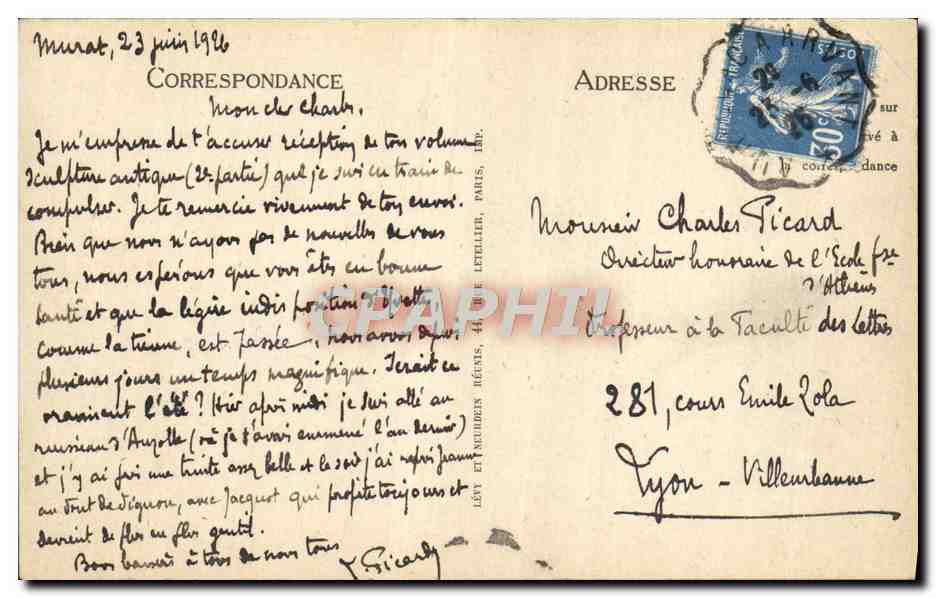 Murat, 23 juin 1926
CORRESPONDANCE
Mon cher Charles.
Je m'empresse de t'accuser réception de ton volume
sculpture antique (2e partie) que je suis en train de
compulser. Je te remercie vivement de ton envoi.
Bien que nous n'ayons pas de nouvelles de vous
tous, nous espérons que vous êtes en bonne
santé et que la légère indisposition d'Yvette,
comme la tienne, est passée, nous avons depuis
plusieurs jours un temps magnifique. Serait ce
vraiment l'été ? Hier après midi je suis allé au
ruisseau d'Auzolle (où je t'avais emmené l'an dernier)
et j'y ai pris une truite assez belle et le soir j'ai repris Jeanne
au Pont de avec Jacquot qui profite toujours et
devient de plus en plus gentil.
Bons baisers à tous de nous tous
Picard
LÉVY ET NEURDEIN RÉUNIS, 44, RUE LETELLIER, PARIS, IMP.
ADRESSE
RÉPUBLIQUE FRANÇAISE
30c
ARRVANT
26
sur
vé à
correspondance
Monsieur Charles Picard
Directeur honoraire de l'Ecole fse
d'Athènes
Professeur à la Faculté des Lettres
281, cours Emile Zola
Lyon - Villeurbanne
CPAPHIL